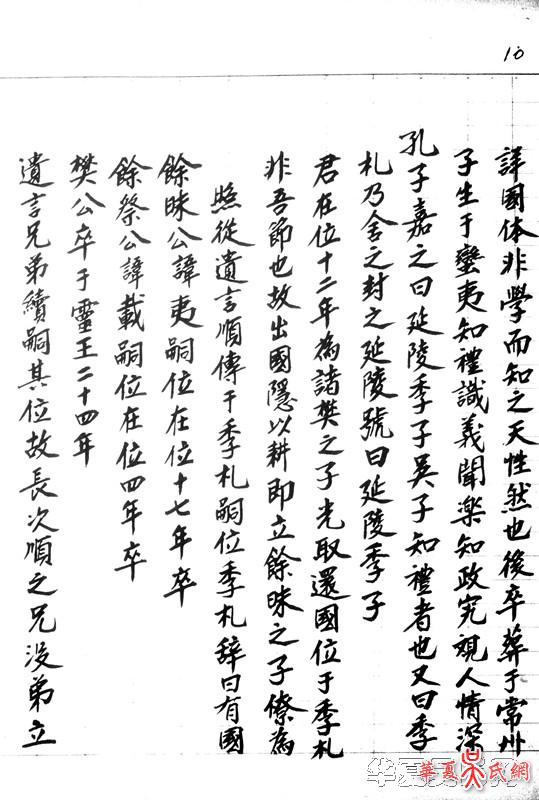 10
遺言兄弟續嗣其位故長次順之兄没弟立
樊公卒于靈王二十四年
餘祭公諱載嗣位在位四年卒
餘昧公諱夷嗣位在位十七年卒
照從遺言順傳于季札嗣位季札辞曰有國
非吾節也故出國隱以耕即立餘昧之子僚為
君在位十二年為諸樊之子光取還國位于季札
札乃舍之封之延陵號曰延陵季子
孔子嘉之曰延陵季子吳子知禮者也又曰季
子生于蠻夷知禮識義聞楽知政究視人情深
詳國体非學而知之天性然也後卒葬于常州
華夏吴氏網